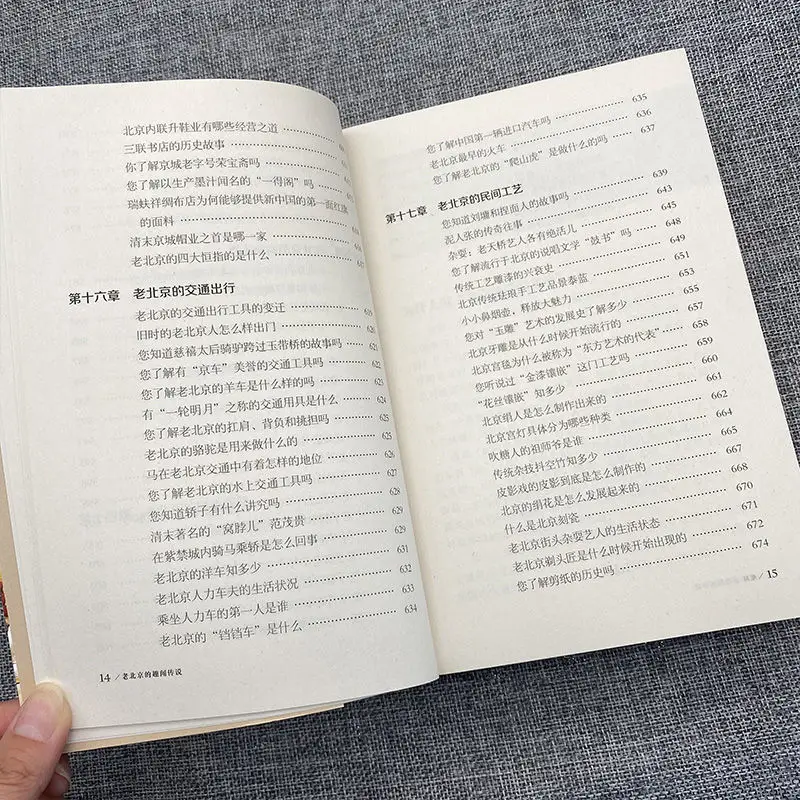 北京内联升鞋业有哪些经营之道
三联书店的历史故事
你了解京城老字号荣宝斋吗
您了解以生产墨汁闻名的“一得阁”吗
瑞蚨祥绸布店为何能够提供新中国的第一面红旗
的面料
清末京城帽业之首是哪一家
老北京的四大恒指的是什么
第十六章 老北京的交通出行
老北京的交通出行工具的变迁 619
旧时的老北京人怎么样出门 620
您知道慈禧太后骑驴跨过玉带桥的故事吗 621
您了解有“京车”美誉的交通工具吗 622
您了解老北京的羊车是什么样的吗 623
有“一轮明月”之称的交通用具是什么 624
您了解老北京的扛肩、背负和挑担吗 625
老北京的骆驼是用来做什么的 625
马在老北京交通中有着怎样的地位 626
您了解老北京的水上交通工具吗 627
您知道轿子有什么讲究吗 628
清末著名的“窝脖儿”范茂贵 629
在紫禁城内骑马乘轿是怎么回事 629
老北京的洋车知多少 631
老北京人力车夫的生活状况 632
乘坐人力车的第一人是谁 633
老北京的“铛铛车”是什么 634
14 / 老北京的趣闻传说
您了解中国第一辆进口汽车吗 635
老北京最早的火车 636
您了解老北京的“爬山虎”是做什么的吗 637
第十七章 老北京的民间工艺
您知道刘墉和捏面人的故事吗 639
泥人张的传奇往事 643
杂耍：老天桥艺人各有绝活儿 645
您了解流行于北京的说唱文学“鼓书”吗 648
传统工艺雕漆的兴衰史 649
北京传统珐琅手工艺品景泰蓝 651
小小鼻烟壶，释放大魅力 653
您对“玉雕”艺术的发展史了解多少 655
北京牙雕是从什么时候开始流行的 657
北京宫毯为什么被称为“东方艺术的代表” 658
您听说过“金漆镶嵌”这门工艺吗 659
“花丝镶嵌”知多少 660
北京绢人是怎么制作出来的 661
北京宫灯具体分为哪些种类 662
吹糖人的祖师爷是谁 664
传统杂技抖空竹知多少 665
皮影戏的皮影到底是怎么制作的 667
北京的绢花是怎么发展起来的 668
什么是北京刻瓷 670
老北京街头杂耍艺人的生活状态 671
老北京剃头匠是什么时候开始出现的 672
您了解剪纸的历史吗 674
15